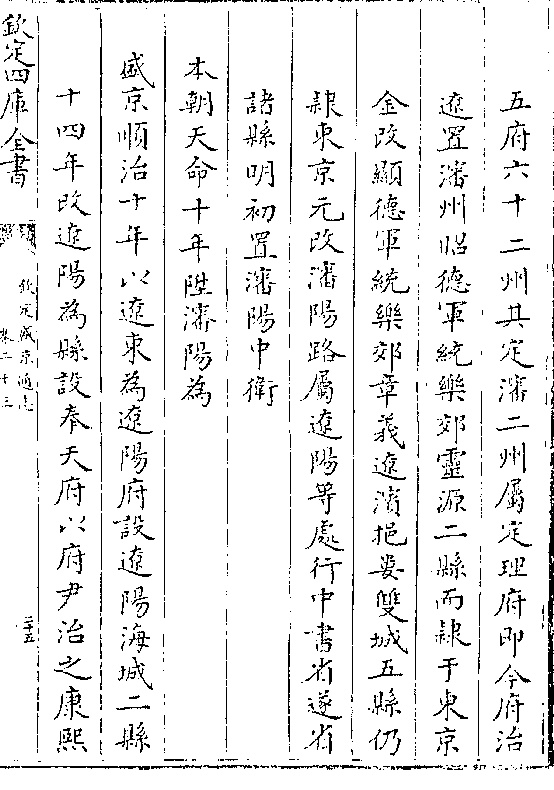 五府六十二州其定瀋二州屬定理府即今府治
遼置瀋州昭德軍統樂郊靈源二縣而隷于東京
金改顯德軍統樂郊章義遼濱挹婁雙城五縣仍
隷東京元改瀋陽路屬遼陽等處行中書省遂省
諸縣明初置瀋陽中衛
本朝天命十年陞瀋陽為
盛京順治十年以遼東為遼陽府設遼陽海城二縣
十四年改遼陽為縣設奉天府以府尹治之康熙
欽定四庫全書
欽定盛京通志
卷二十三
二十五